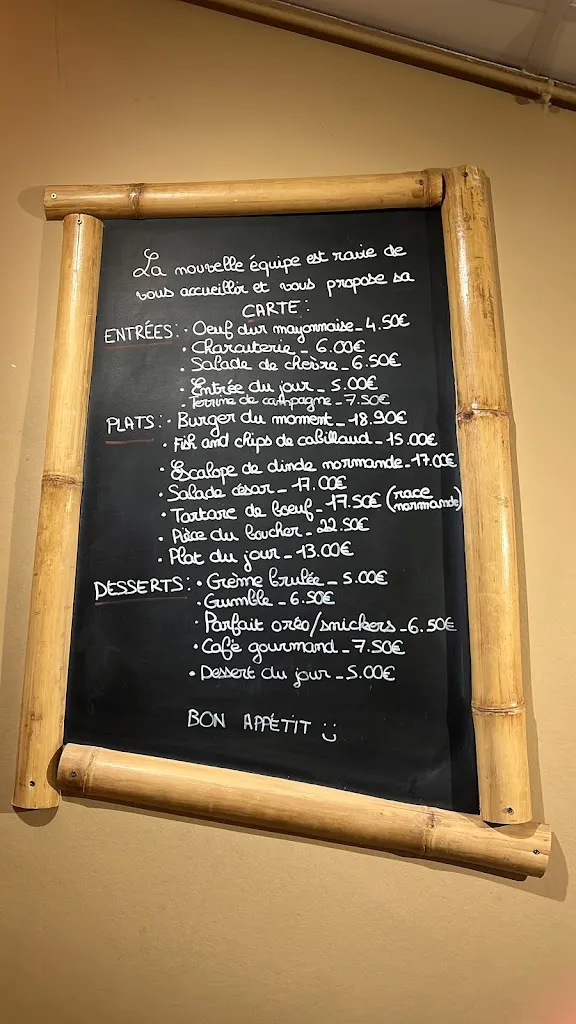 La nouvelle équipe est ravie de
vous accueillir et vous propose sa
CARTE:
ENTRÉES: • Oeuf dur mayonnaise - 4.50€
• Charcuterie - 6.00€
• Salade de chèvre - 6.50€
• Entrée du jour - 5.00€
• Terrine de campagne - 7.50€
PLATS: • Burger du moment - 18.90€
• Fish and chips de cabillaud - 15.00€
• Escalope de dinde normande - 17.00€
• Salade césar - 17.00€
• Tartare de boeuf - 17.50€ (race normande)
• Pièce du boucher - 22.50€
• Plat du jour - 13.00€
DESSERTS: • Crème brulée - 5.00€
• Crumble - 6.50€
• Parfait oréo/snickers - 6.50€
• Café gourmand - 7.50€
• Dessert du jour - 5.00€
BON APPÉTIT :)